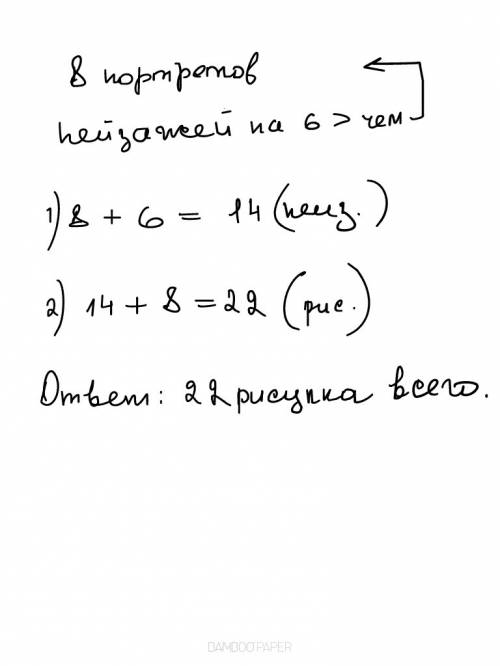 8 портретов
пейзажей на 6 > чем
1) 8 + 6 = 14 (пейз.)
2) 14 + 8 = 22 (рис.)
Ответ: 22 рисунка всего.
BAMBOOPAPER